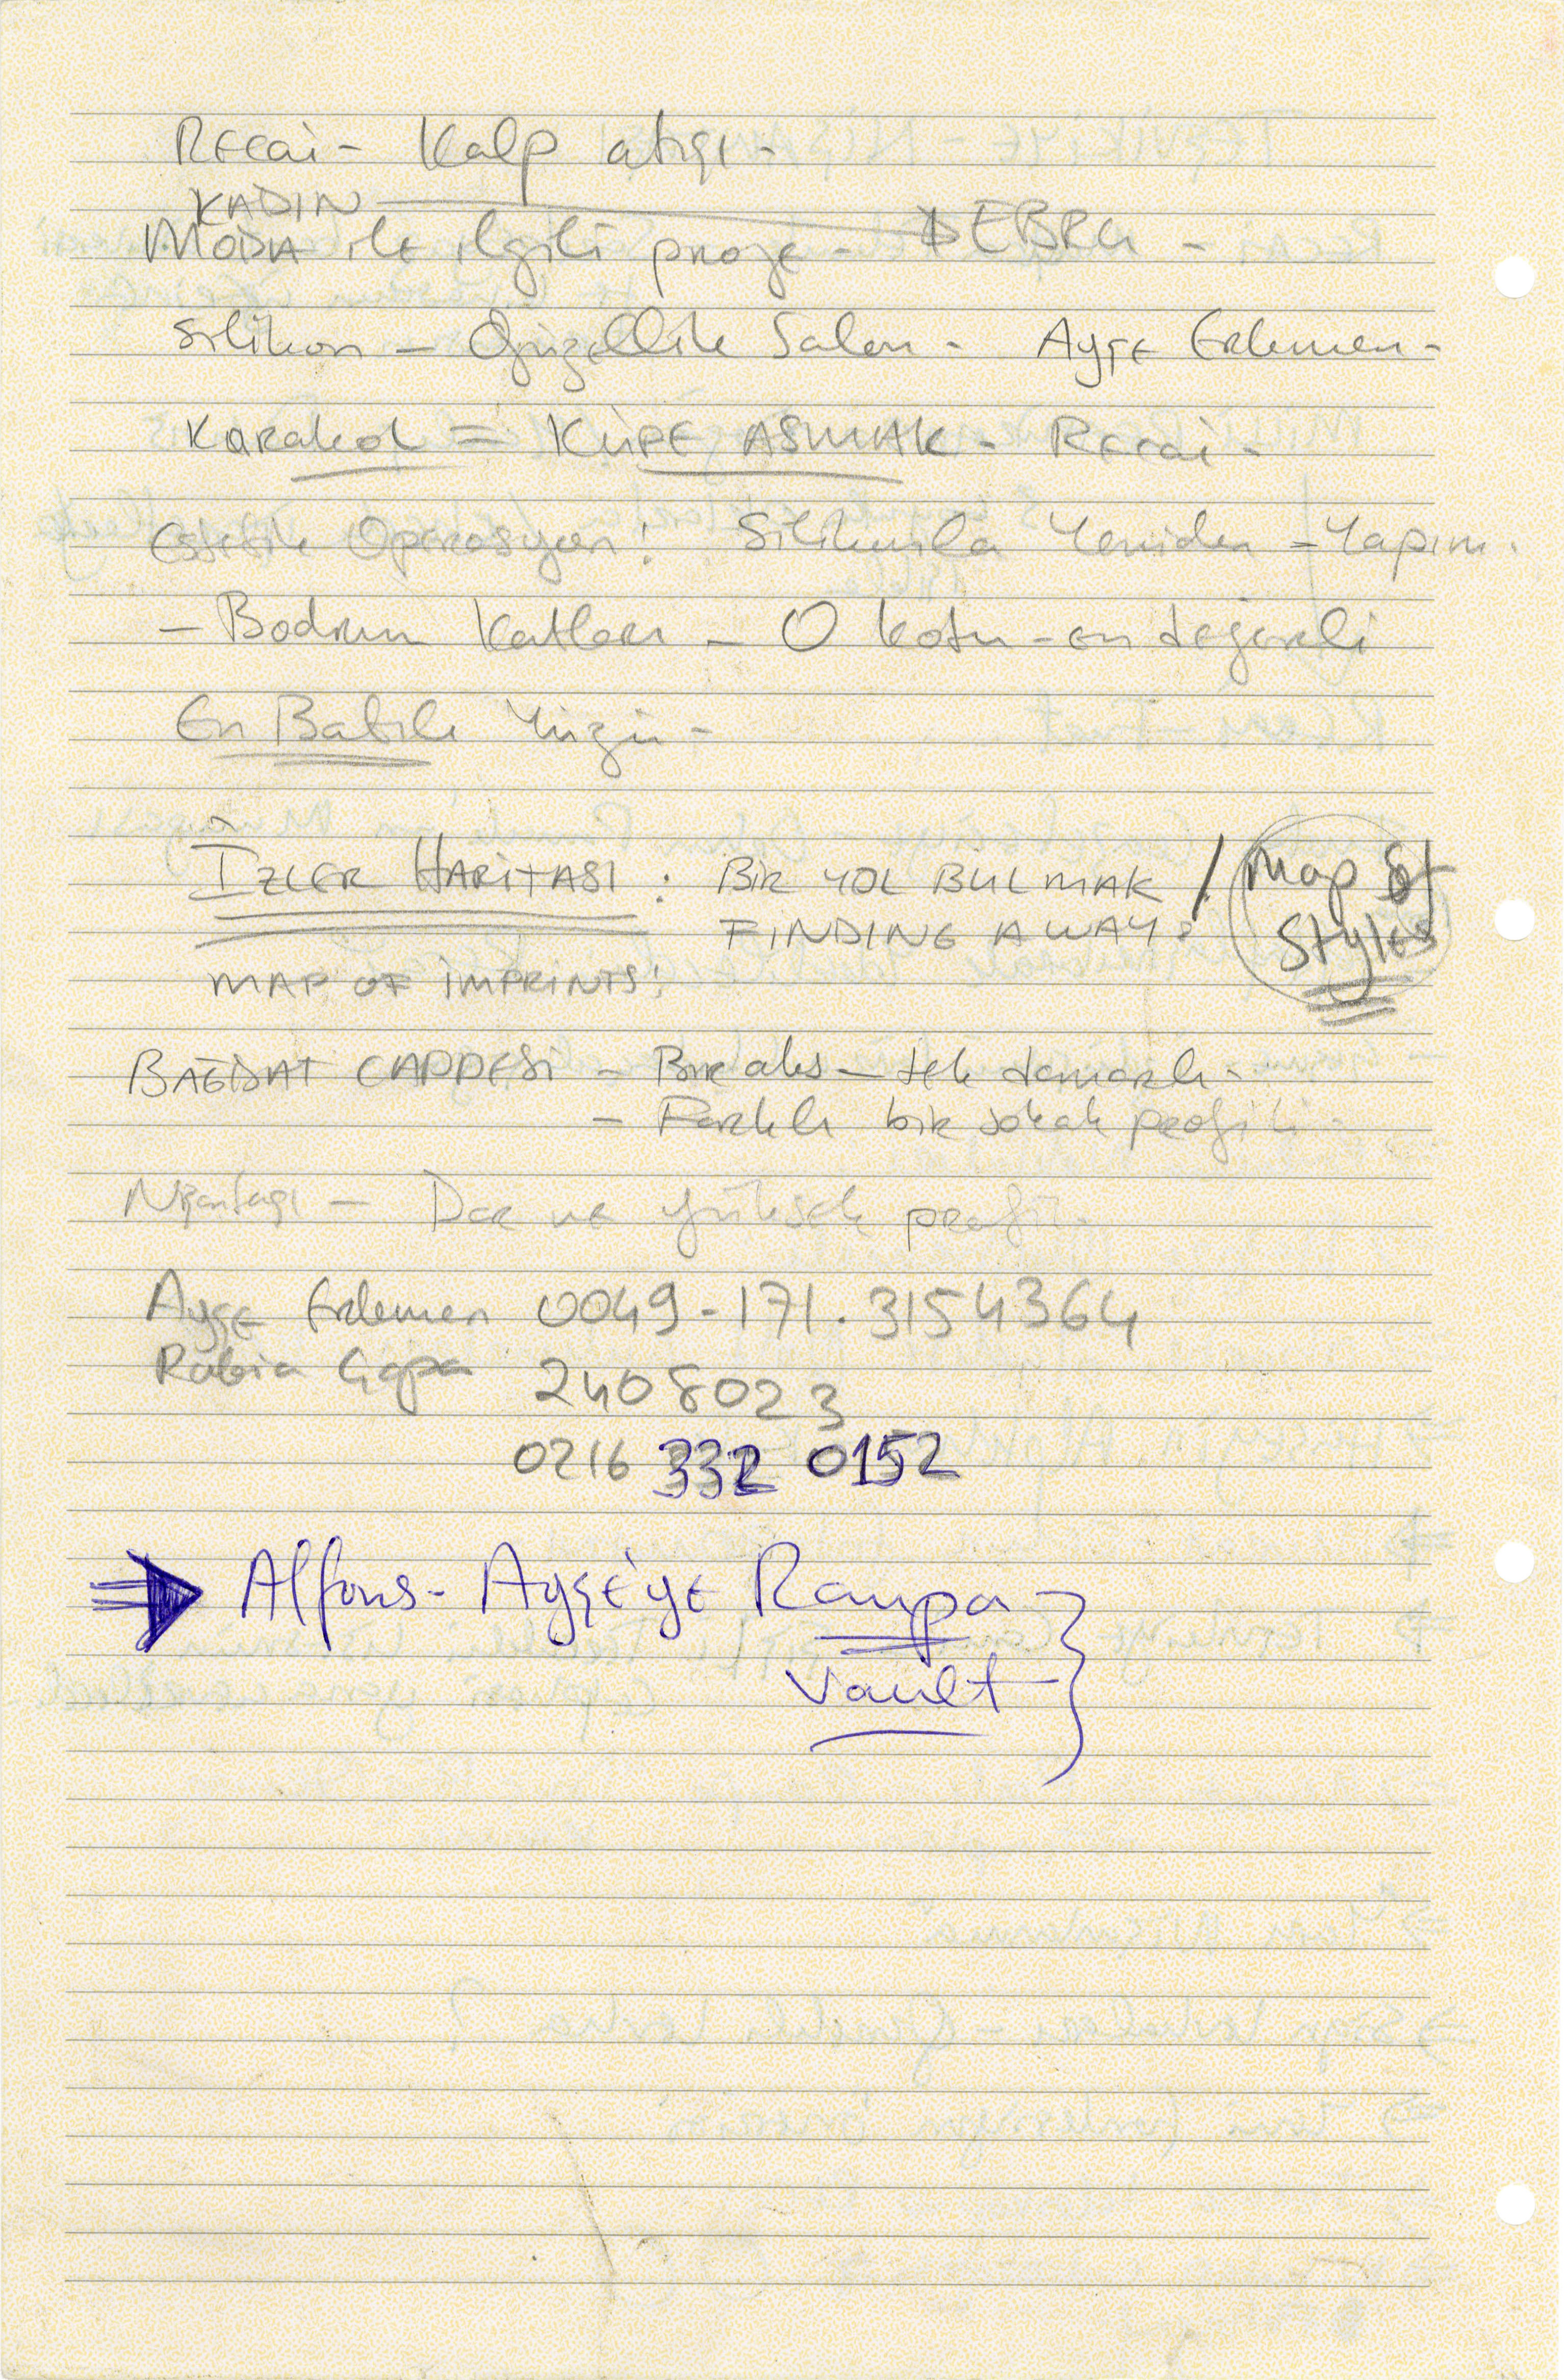 Recai - Kalp atışı -
KADIN
MODA ile ilgili proje - DEBRA -
Silikon - Güzellik Salon - Ayşe Erkmen -
Karakol = KÜPE ASMAK - Recai -
Estetik Operasyon! Silikonla Yeniden - Yapım.
- Bodrum Katları - O kotu - en değerli
En Batılı Yüzü -
İZLER HARİTASI : BİR YOL BULMAK / Map of
FINDING A WAY: Styles
MAP OF IMPRINTS!
BAĞDAT CADDESİ - Breaks - tek damarlı -
- Farklı bir sokak profili -
Nişantaşı - Dar ve yüksek profil.
Ayşe Erkmen 0049 - 171. 3154364
Rabia Çapa 2408023
0216 332 0152
⇒ Alfons - Ayşe'ye Rampa
Vault